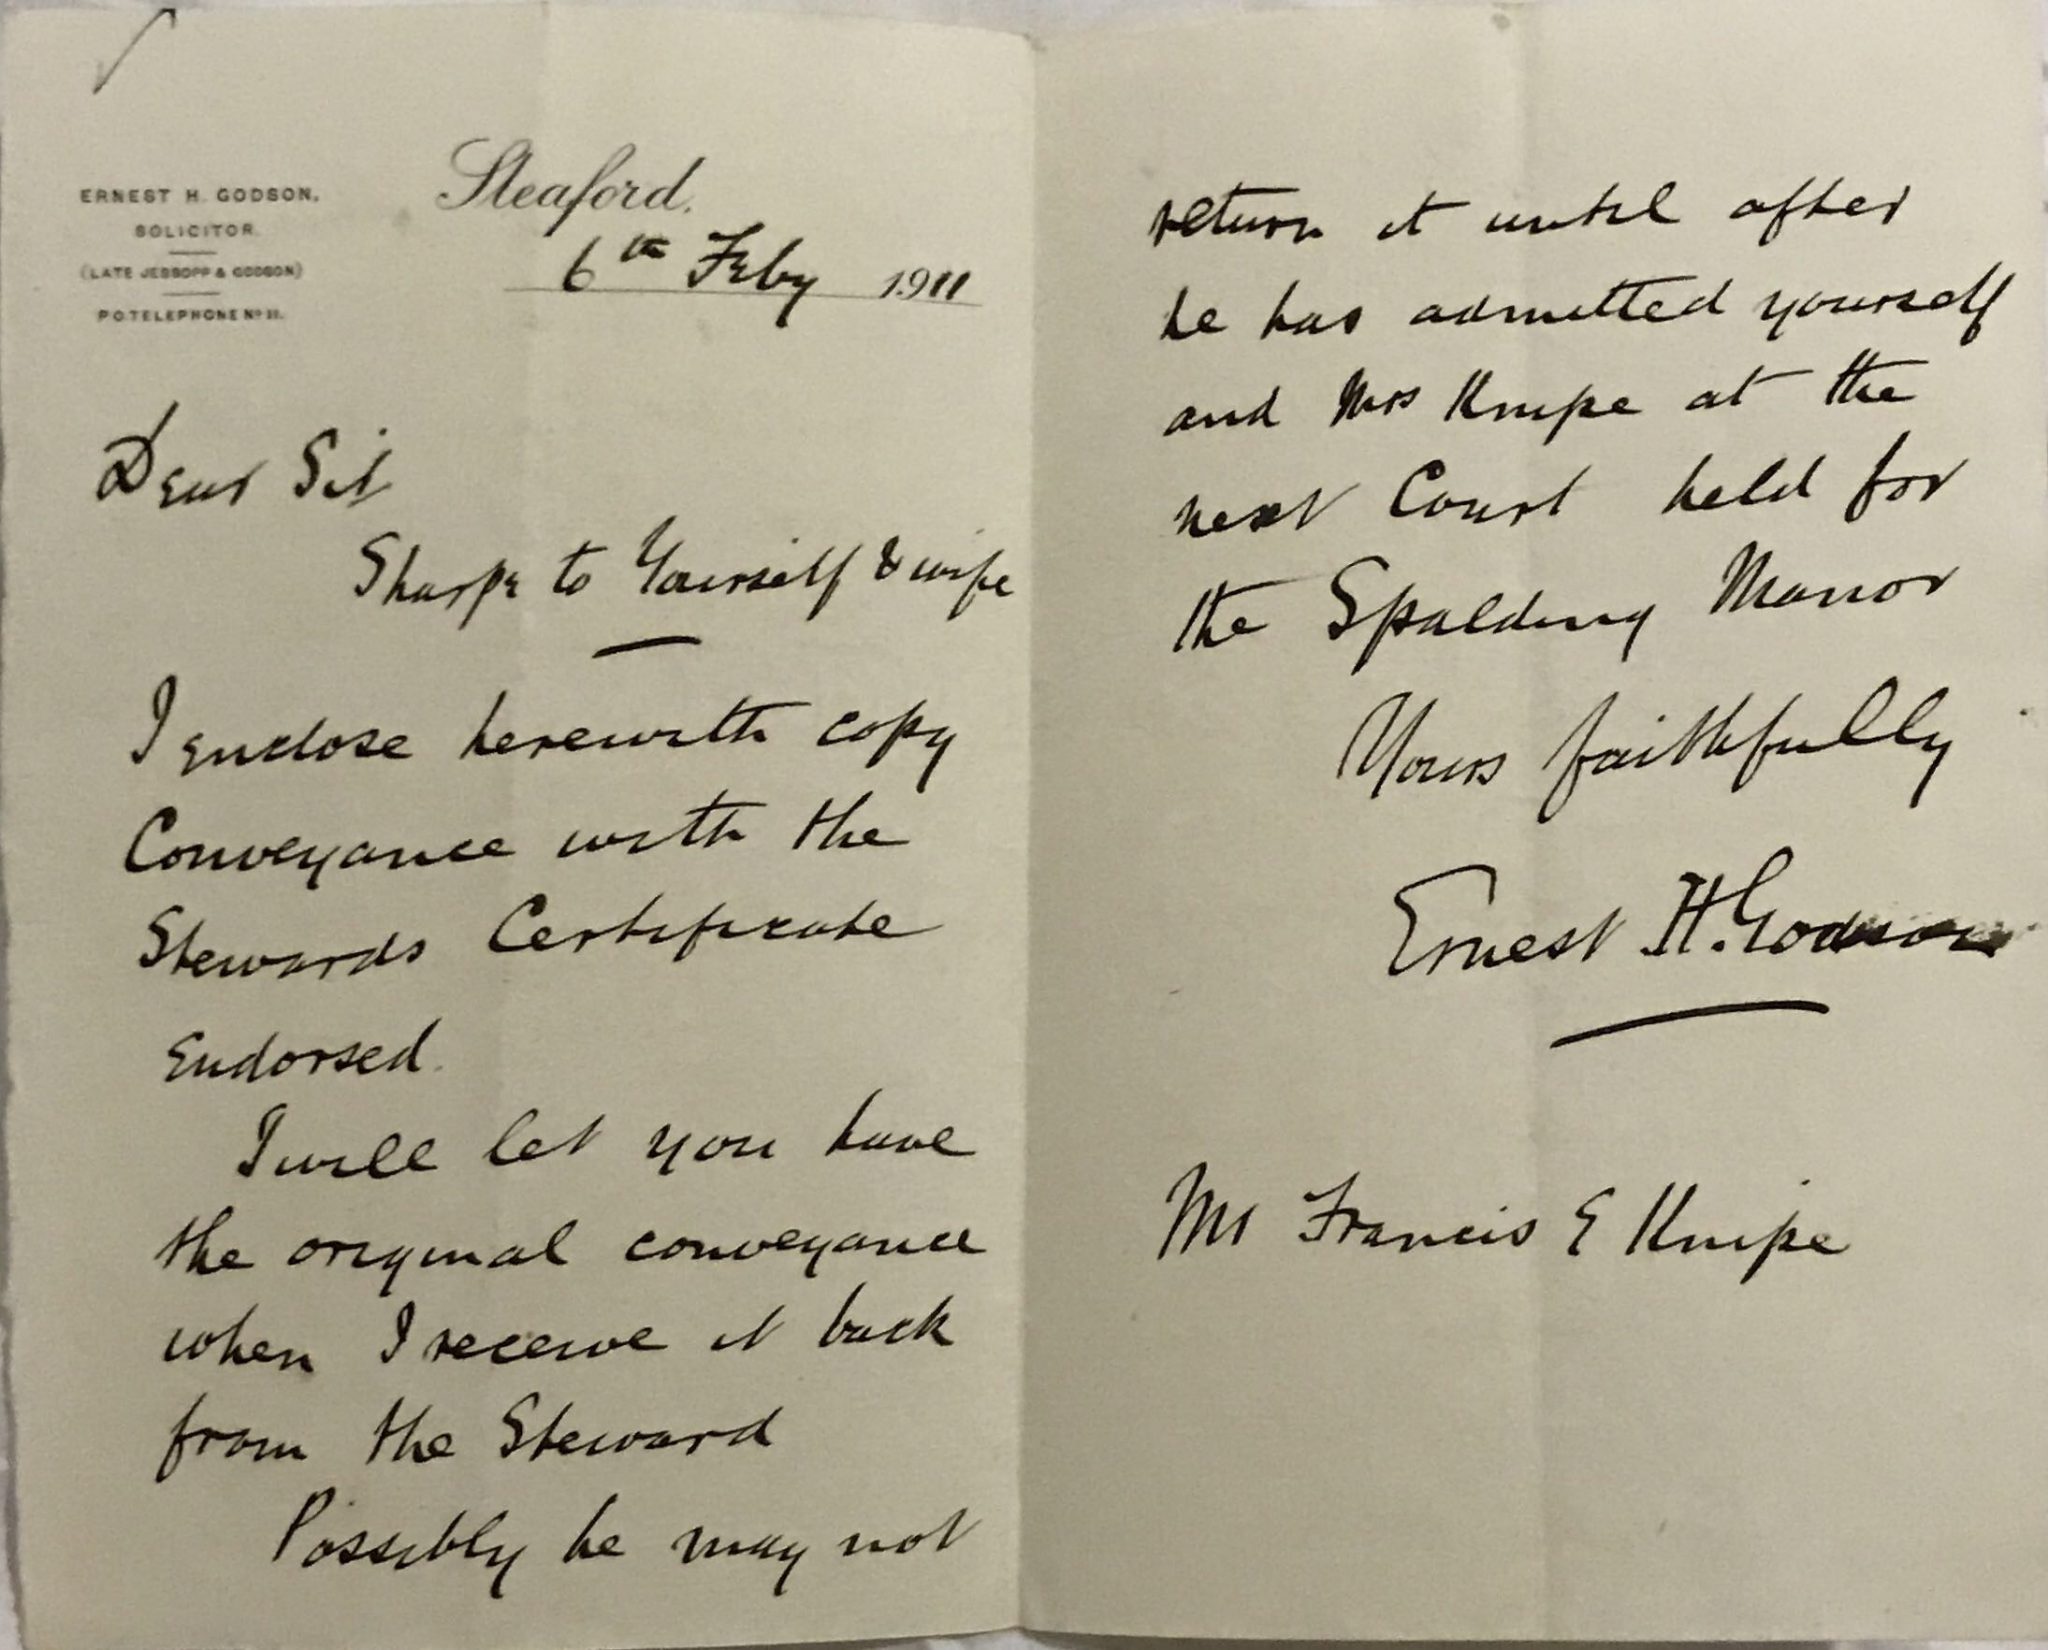 ERNEST H. GODSON,
SOLICITOR.
(LATE JESSOPP & GODSON)
P.O. TELEPHONE No 11.
Sleaford.
6th Feby 1911
Dear Sir
Sharpe to Yourself & wife
I enclose herewith copy
Conveyance with the
Stewards Certificate
Endorsed.
I will let you have
the original conveyance
when I receive it back
from the Steward
Possibly he may not
return it until after
he has admitted yourself
and Mrs Knipe at the
next Court held for
the Spalding Manor
Yours faithfully
Ernest H. Godson
Mr Francis E Knipe